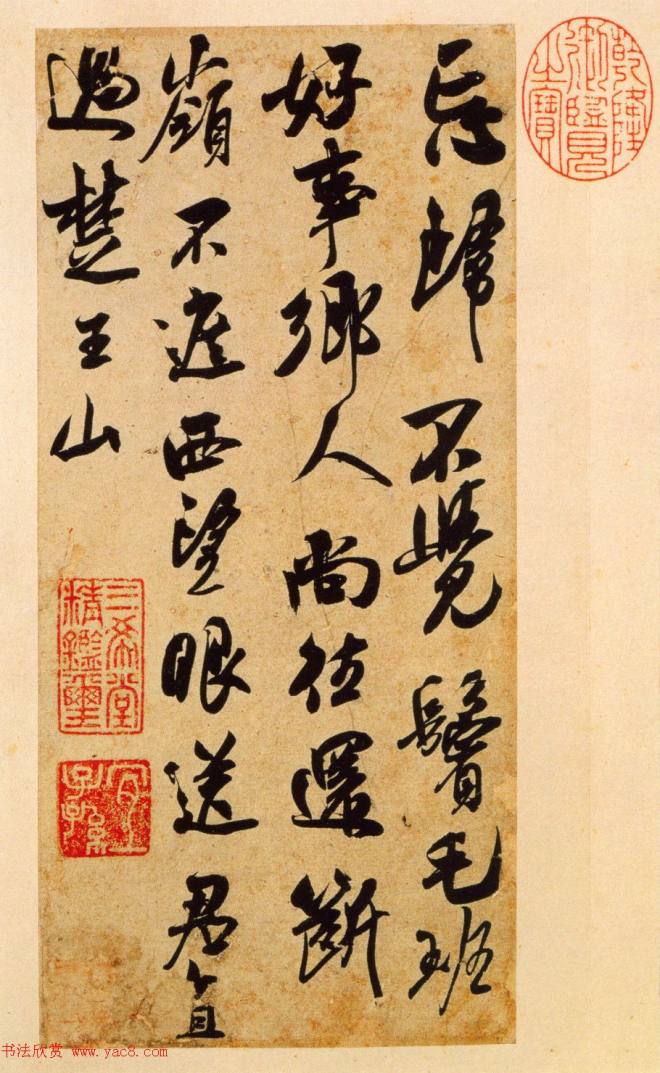 忘歸不覺鬢毛班
好事鄉人尚往還斷
嶺不遮西望眼送君直
過楚王山
乾隆御覽之寶
三希堂精鑑璽
宜子孫
书法欣赏 www.yac8.com